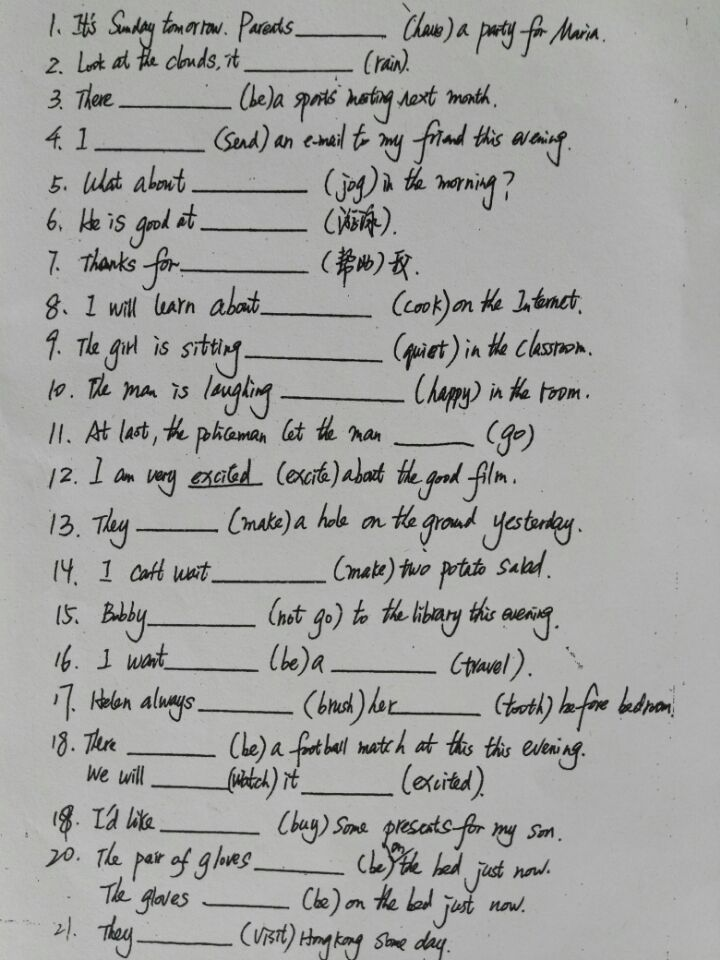 1. It's Sunday tomorrow. Parents ________ (have) a party for Maria.
2. Look at the clouds, it ________ (rain).
3. There ________ (be) a sports meeting next month.
4. I ________ (send) an e-mail to my friend this evening.
5. What about ________ (jog) in the morning?
6. He is good at ________ (游泳).
7. Thanks for ________ (帮助) 我.
8. I will learn about ________ (cook) on the Internet.
9. The girl is sitting ________ (quiet) in the classroom.
10. The man is laughing ________ (happy) in the room.
11. At last, the policeman let the man ________ (go)
12. I am very excited (excite) about the good film.
13. They ________ (make) a hole on the ground yesterday.
14. I can't wait ________ (make) two potato salad.
15. Bobby ________ (not go) to the library this evening.
16. I want ________ (be) a ________ (travel).
17. Helen always ________ (brush) her ________ (tooth) before bedroom.
18. There ________ (be) a football match at this this evening.
We will ________ (watch) it ________ (excited).
19. I'd like ________ (buy) some presents for my son.
20. The pair of gloves ________ (be) on the bed just now.
The gloves ________ (be) on the bed just now.
21. They ________ (visit) Hong Kong some day.